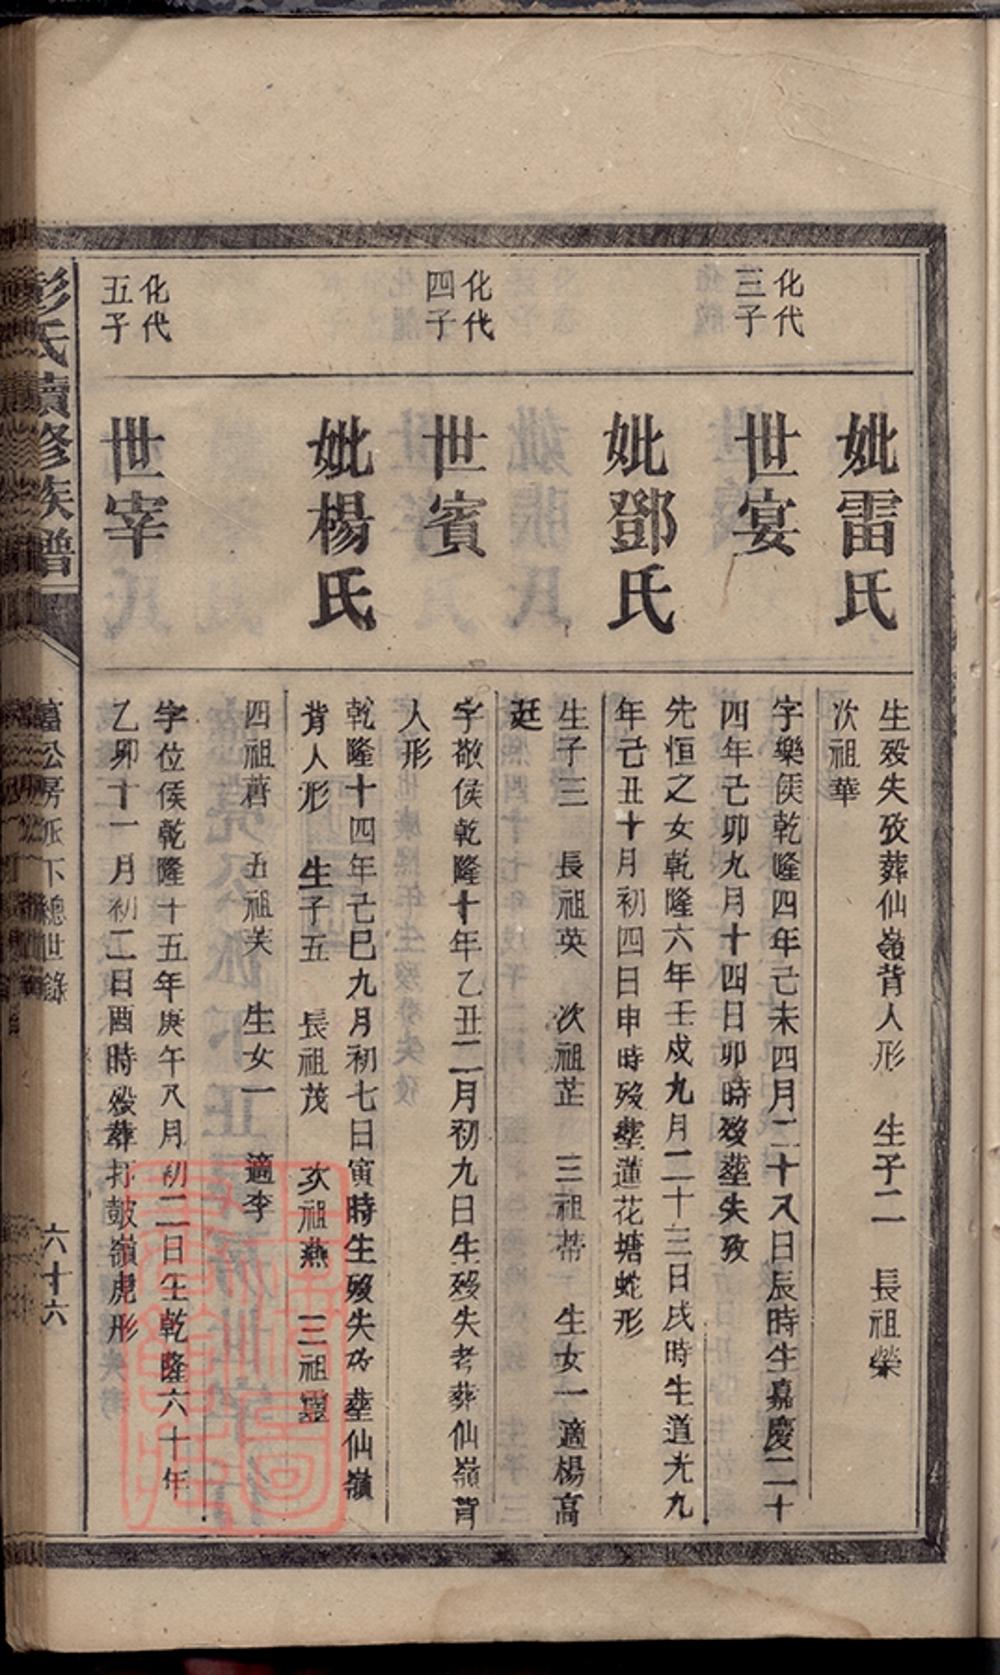 妣雷氏
生殁失攷葬仙嶺背人形　生子二　長祖榮
次祖華
化代
三子
世宴
字樂侯乾隆四年己未四月二十八日辰時生嘉慶二十
四年己卯九月十四日卯時歿塟失攷
妣鄧氏
先恒之女乾隆六年壬戍九月二十三日戌時生道光九
年己丑十月初四日申時歿塟蓮花塘蛇形
生子三　長祖英　次祖芷　三祖蒂　生女一適楊高
廷
化代
四子
世賓
字敬侯乾隆十年乙丑二月初九日生歿失考葬仙嶺背
人形
妣楊氏
乾隆十四年己巳九月初七日寅時生歿失攷塟仙嶺
背人形　生子五　長祖茂　次祖燕　三祖靈
四祖蔚　五祖芙　生女一　適李
化代
五子
世宰
字位侯乾隆十五年庚午八月初二日生乾隆六十年
乙卯十一月初二日酉時殁葬打鼓嶺虎形
彭氏續修族譜
公房派下總世錄
六十六